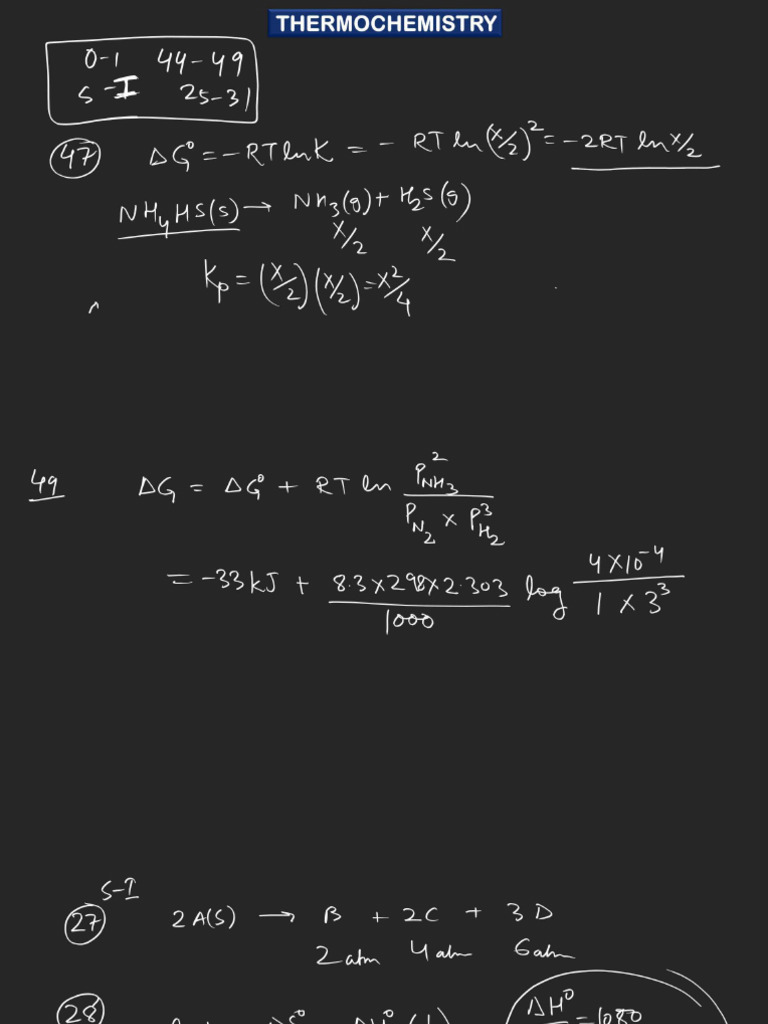 THERMOCHEMISTRY
O-1 44-49
S-I 25-31
47 ΔG° = -RTlnK = - RT ln(x/2)² = -2RT ln x/2
NH₄HS(s) → NH₃(g) + H₂S(g)
x/2 x/2
Kp = (x/2)(x/2) = x²/4
49 ΔG = ΔG° + RT ln P²NH₃ / (PN₂ × P³H₂)
= -33kJ + (8.3×298×2.303)/1000 log (4×10⁻⁴)/(1×3³)
S-I
27 2A(S) → B + 2C + 3D
2atm 4atm 6atm
28 ΔS° ΔH° ΔH° = 1080